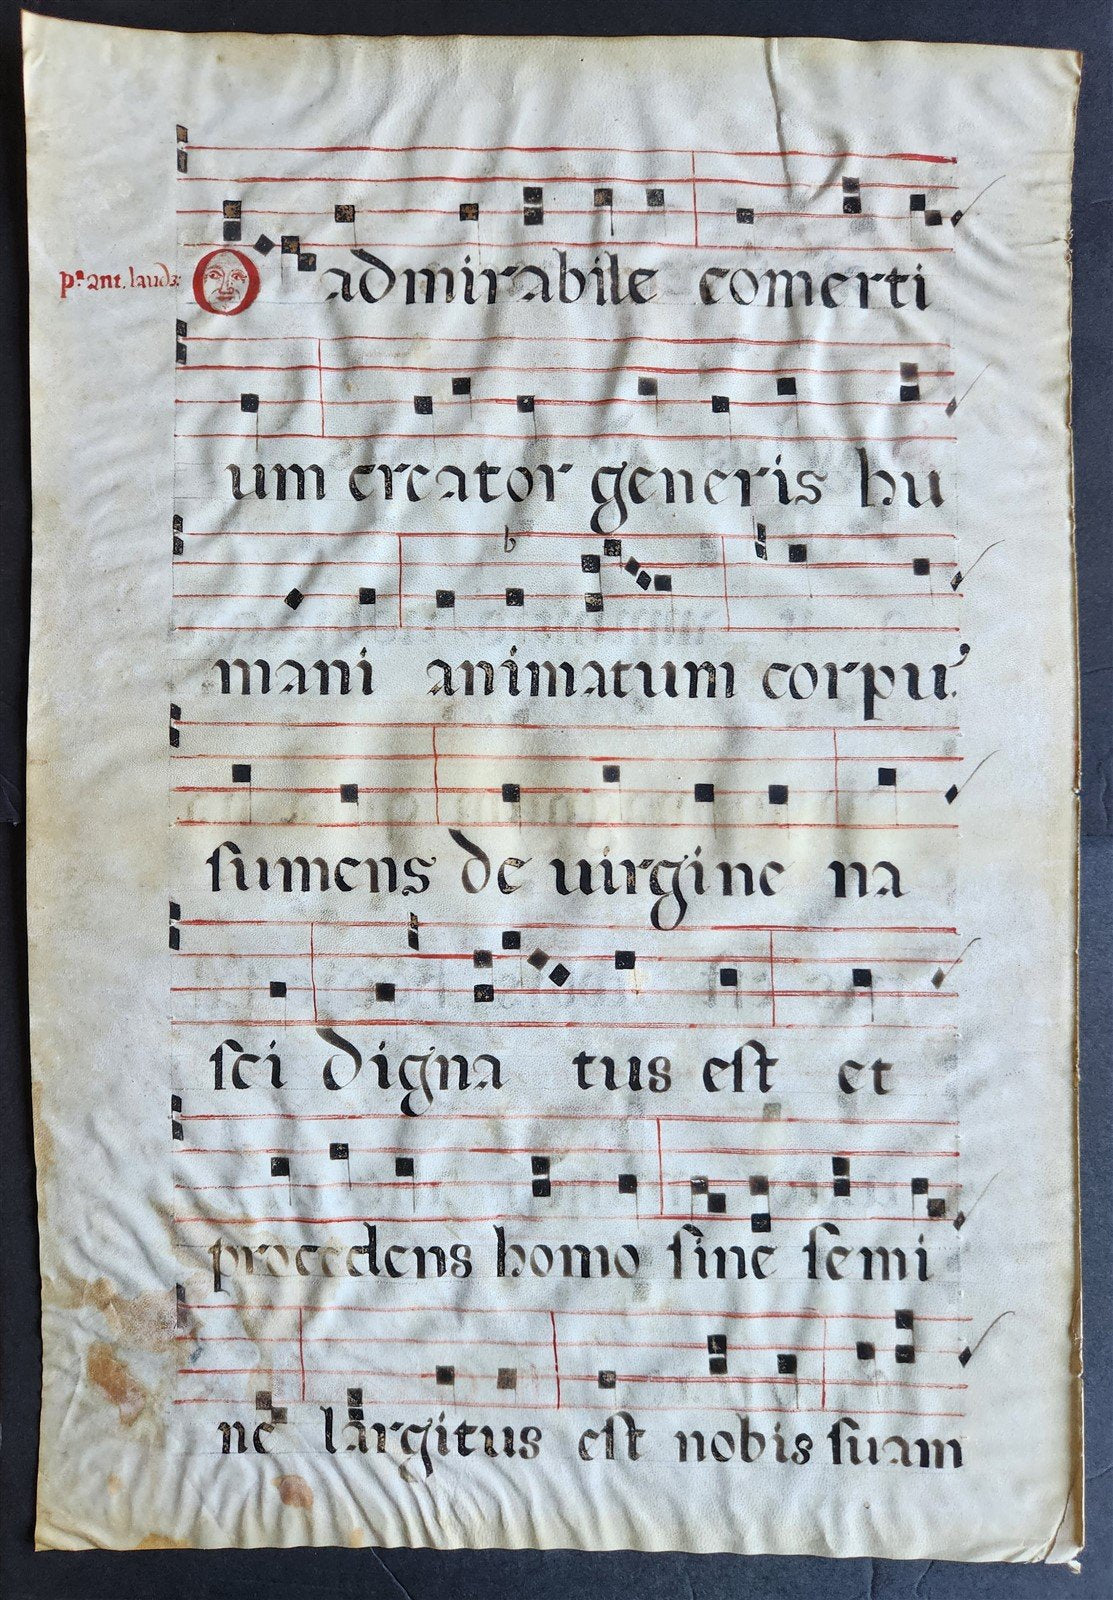 pª ant. laud3.
O admirabile comerti
um creator generis hu
mani animatum corpus
sumens de uirgine na
sci digna tus est et
procedens homo sine semi
ne largitus est nobis suam